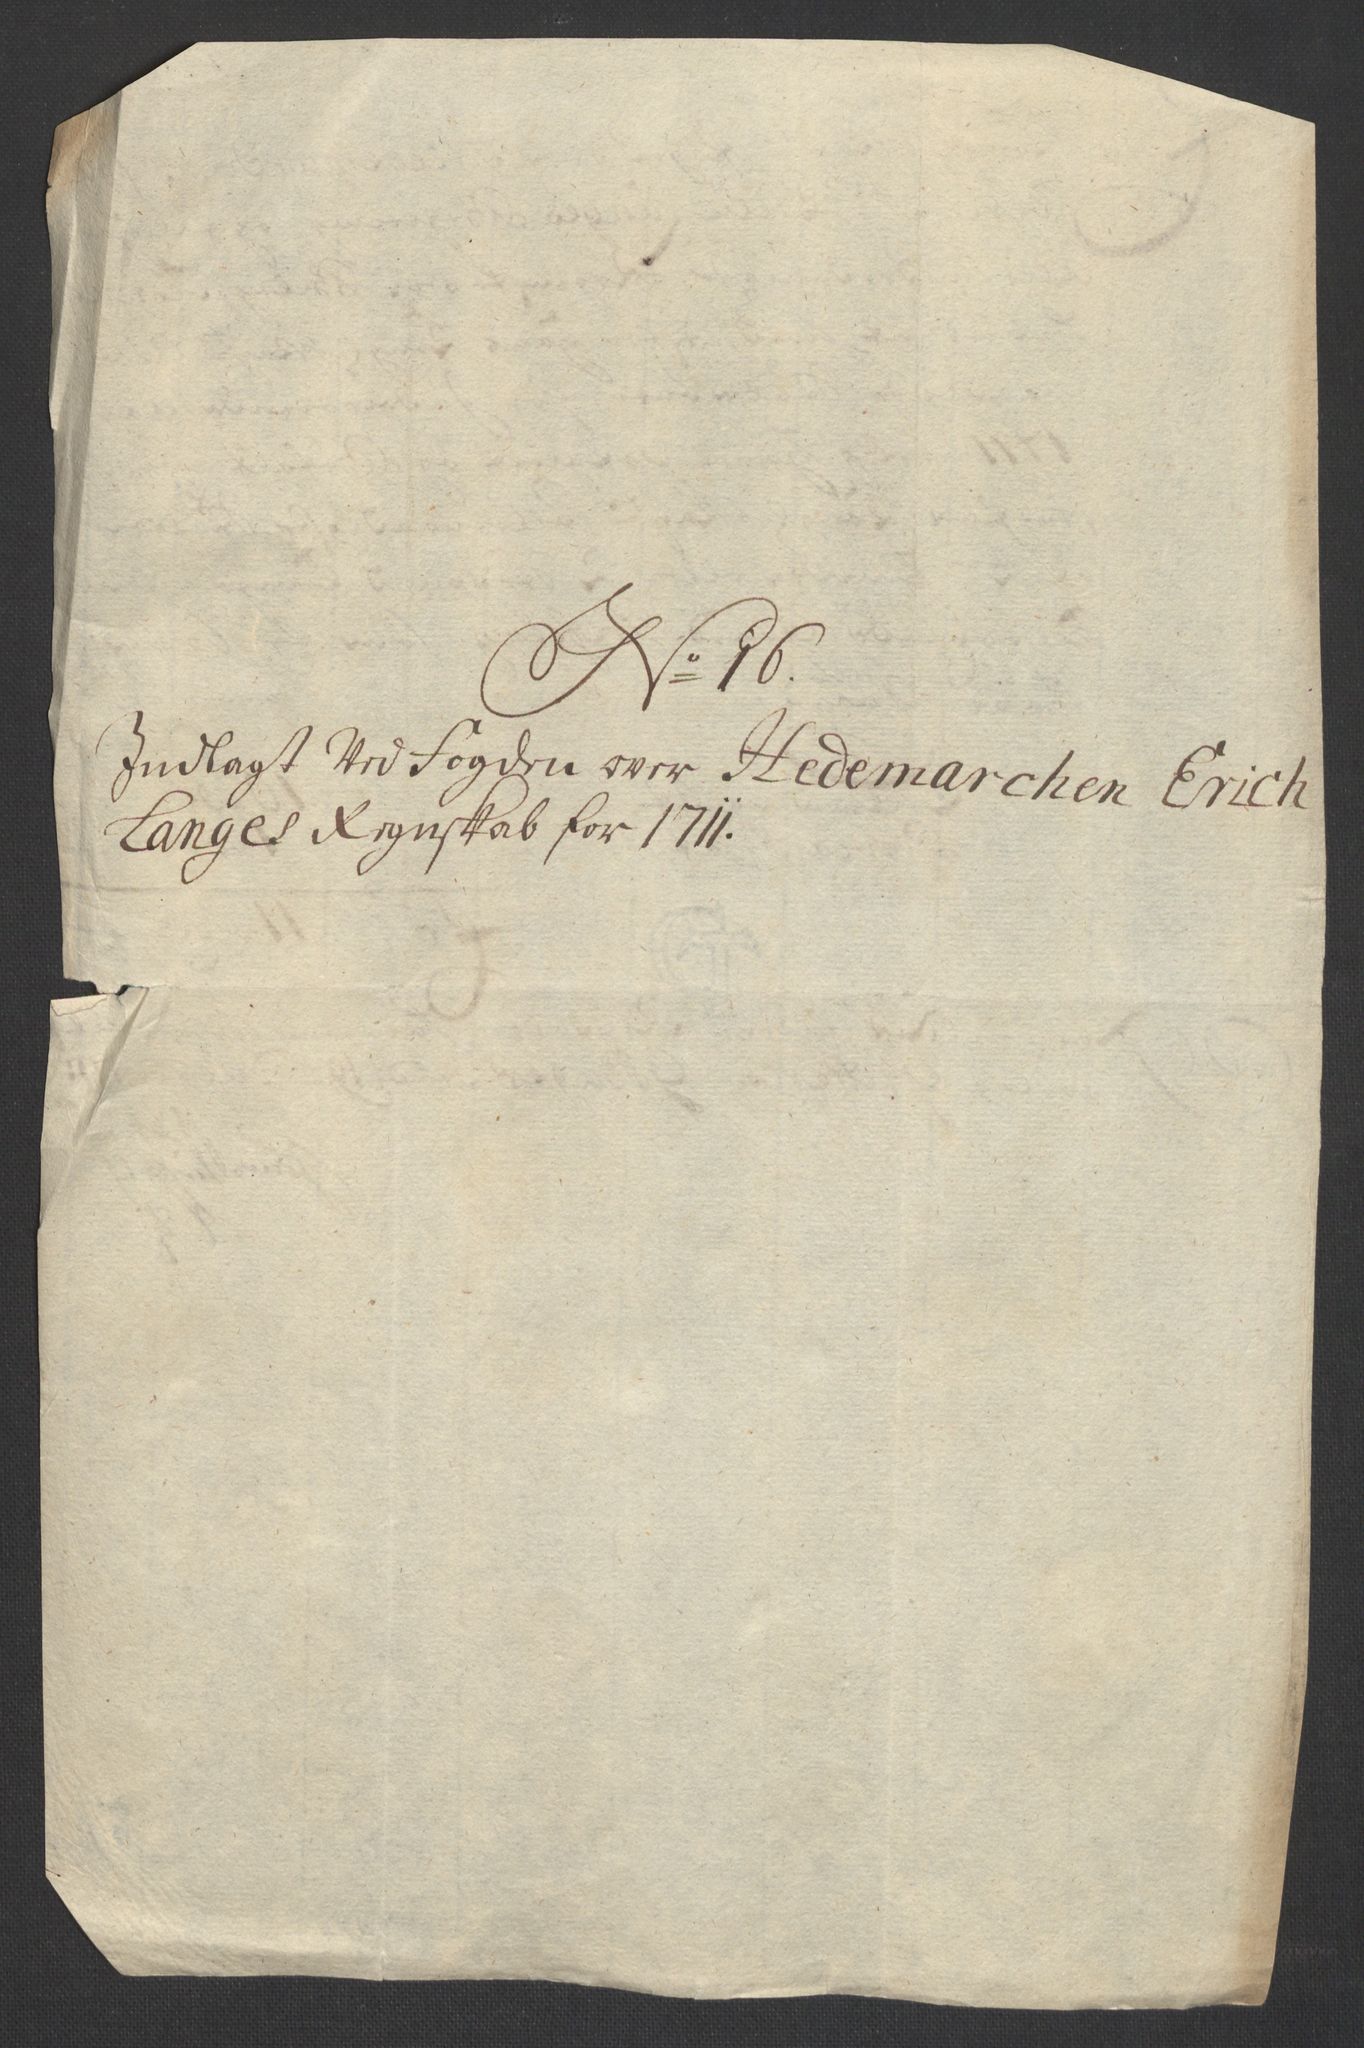 No 16.
Indlagt Ved Fogden over Hedemarchen Erich
Langes Regnskab for 1711.